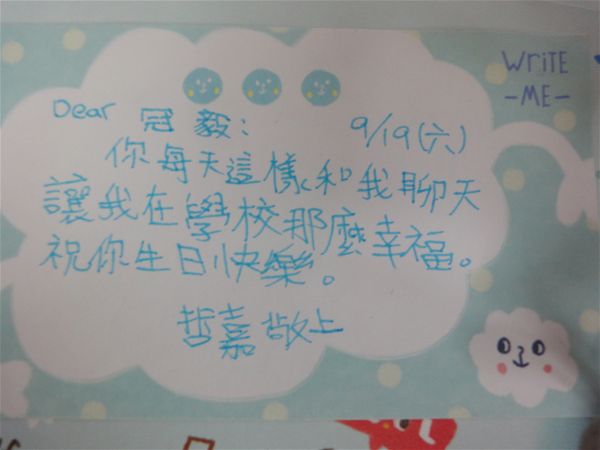 WRiTE
-ME-
Dear 冠毅: 9/19(六)
你每天這樣和我聊天
讓我在學校那麼幸福。
祝你生日快樂。
哲嘉敬上